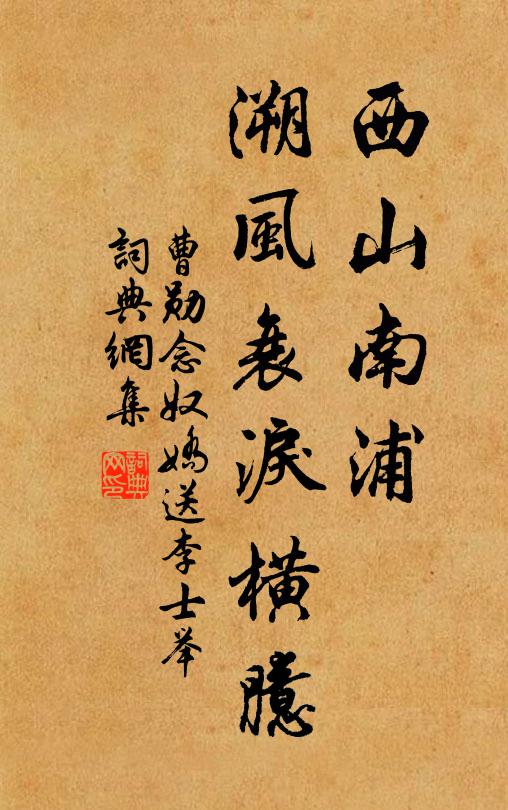 西山南浦
溯風衰淚橫臆
曹勛念奴嬌送李士举
詞典網集
詞典網印